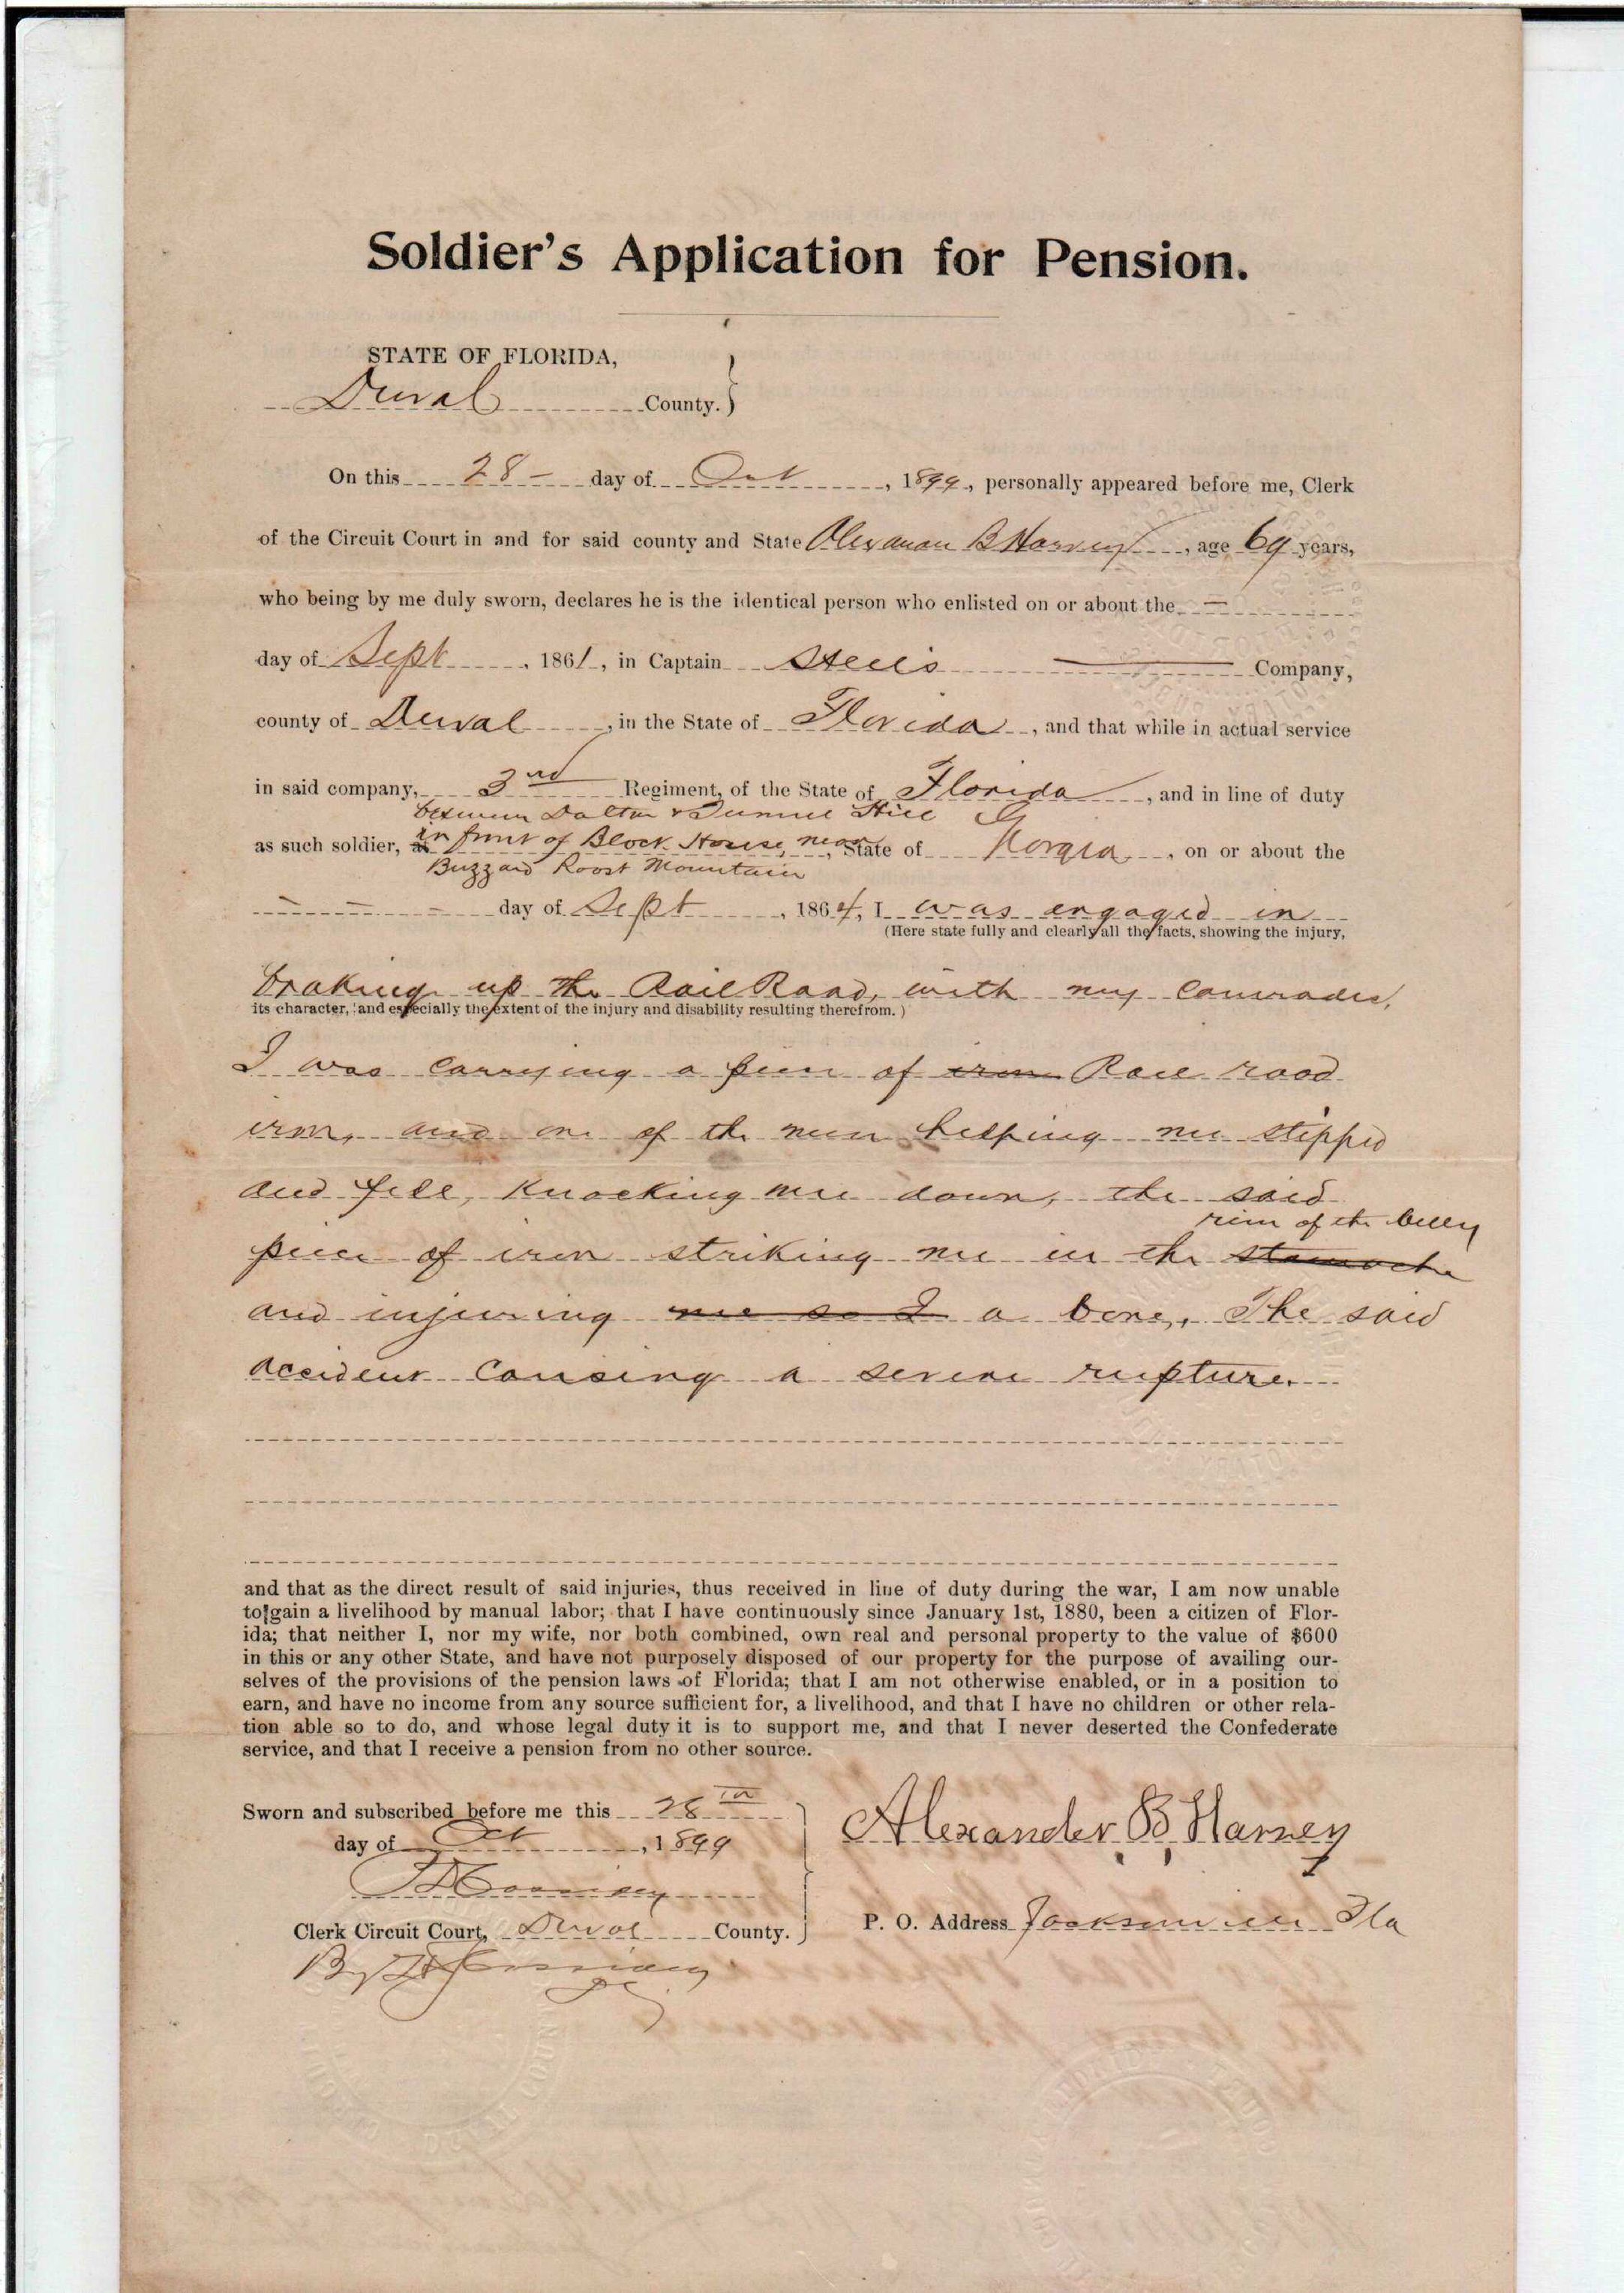 Soldier's Application for Pension.
STATE OF FLORIDA,
Duval County.
On this 28 - day of Oct, 1899, personally appeared before me, Clerk
of the Circuit Court in and for said county and State Alexander B Harvey, age 69 years,
who being by me duly sworn, declares he is the identical person who enlisted on or about the —
day of Sept, 1861, in Captain Steeis Company,
county of Duval, in the State of Florida, and that while in actual service
in said company, 3rd Regiment, of the State of Florida, and in line of duty
between Dalton & Tunnel Hill
as such soldier, at in front of Block House, near, State of Georgia, on or about the
Buzzard Roost Mountain
- - - day of Sept, 1864, I was engaged in
(Here state fully and clearly all the facts, showing the injury,
braking up the Rail Road, with my comrades,
its character, and especially the extent of the injury and disability resulting therefrom.)
I was carrying a piece of iron Rail road
iron, and one of the men helping me slipped
and fell, knocking me down, the said
rim of the belly
piece of iron striking me in the stomache
and injuring me so I a bone, The said
accident causing a severe rupture.
and that as the direct result of said injuries, thus received in line of duty during the war, I am now unable
to gain a livelihood by manual labor; that I have continuously since January 1st, 1880, been a citizen of Flor-
ida; that neither I, nor my wife, nor both combined, own real and personal property to the value of $600
in this or any other State, and have not purposely disposed of our property for the purpose of availing our-
selves of the provisions of the pension laws of Florida; that I am not otherwise enabled, or in a position to
earn, and have no income from any source sufficient for, a livelihood, and that I have no children or other rela-
tion able so to do, and whose legal duty it is to support me, and that I never deserted the Confederate
service, and that I receive a pension from no other source.
Sworn and subscribed before me this 28th
day of Oct, 1899
Alexander B Harvey
Clerk Circuit Court, Duval County.
P. O. Address Jacksonville Fla
By